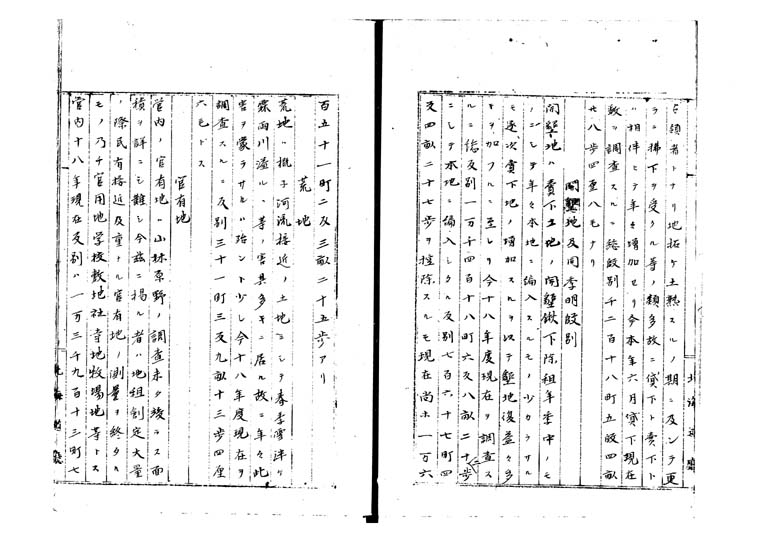 ヲ領者トナリ地拓ケ土熟スルノ期ニ及ンテ更
ラニ拂下ヲ受クル等ノ類多故ニ貸下ト賣下ト
相伴ヒテ年々増加セリ今本年六月貸下現在
数ヲ調査スルニ総段別千二百十八町五段四畝
廿八歩四歪八モナリ
開墾地及同季明段別
開墾地ハ賣下土地ノ開墾鍬下除租年季中ノモ
ノニシテ年々本地ニ編入スルモノ少カラサル
モ逐次賣下地ノ増加スルヲ以テ墾地復益々多
キヲ加フルニ至レリ今十八年度現在ヲ調査ス
ルニ総反別一万千四百十八町六反八畝二十歩
ニシテ本地ニ編入シタル反別七百六十七町四
反四畝二十七歩ヲ控除スルモ現在尚ホ一万六
百五十一町二反三畝二十五歩アリ
荒地
荒地ハ概子河流接近ノ土地ニシテ春季雪洋ケ
霖雨川溢ルヽ等ノ害其多キニ居ル故ニ年々此
害ヲ蒙ラサルハ殆ント少シ今十八年度現在ヲ
調査スルニ反別三十一町三反九畝十三歩四厘
六毛トス
官有地
管内ノ官有地ハ山林原野ノ調査未タ竣ラス面
積ヲ詳ニシ難シ今茲ニ掲ル者ハ地租創定大量
ノ際民有接近及重ナル官有地ノ測量ヲ終タル
モノ乃チ官用地学校敷地社寺地牧場地等トス
管内十八年現在反別ハ一万三千九百十三町七
北海道廳
北海道廳